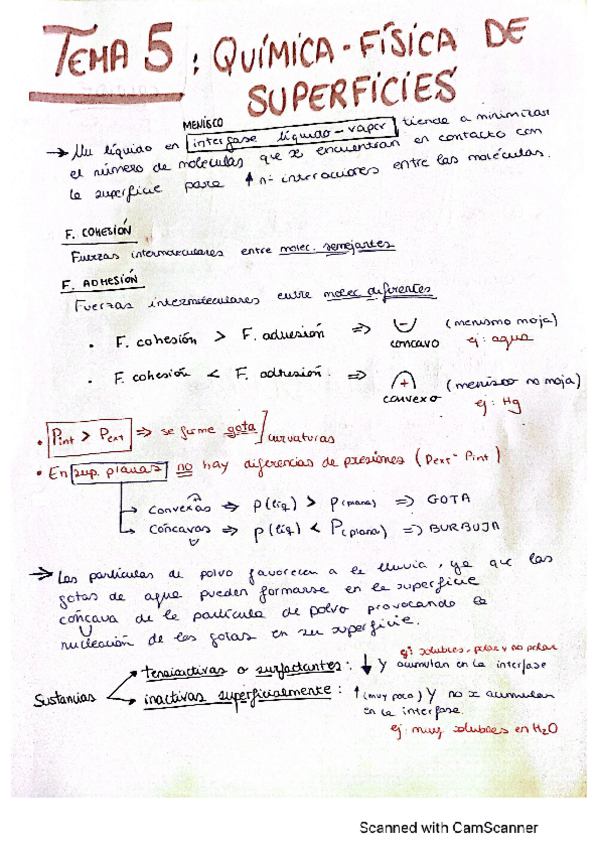 TEMA 5: QUÍMICA-FÍSICA DE
SUPERFICIES
MENISCO
→ Un líquido en interfase líquido-vapor tiende a minimizar
el número de moléculas que se encuentran en contacto con
la superficie para ↑ nº interacciones entre las moléculas.
F. COHESIÓN
Fuerzas intermoleculares entre molec. semejantes
F. ADHESIÓN
Fuerzas intermoleculares entre molec diferentes
• F. cohesión > F. adhesión ⇒ - (menismo moja)
concavo ej: agua
• F. cohesión < F. adhesión. ⇒ + (menisco no moja)
convexo ej: Hg
• Pint > Pext ⇒ se forme gota curvaturas
• En sup. planas no hay diferencias de presiones (Pext = Pint)
→ convexas ⇒ p(liq) > p(plana) ⇒ GOTA
→ cóncavas ⇒ p(liq) < P(plana) ⇒ BURBUJA
→ Las partículas de polvo favorecen a la lluvia, ya que las
gotas de agua pueden formarse en la superficie
cóncava de la partícula de polvo provocando la
nucleación de las gotas en su superficie.
ej: solubles, polar y no polar
Sustancias
tensioactivas o surfactantes: ↓ γ acumulan en la interfase
inactivas superficialmente: ↑ (muy poco) γ no se acumulan
en la interfase.
ej: muy solubles en H2O
Scanned with CamScanner